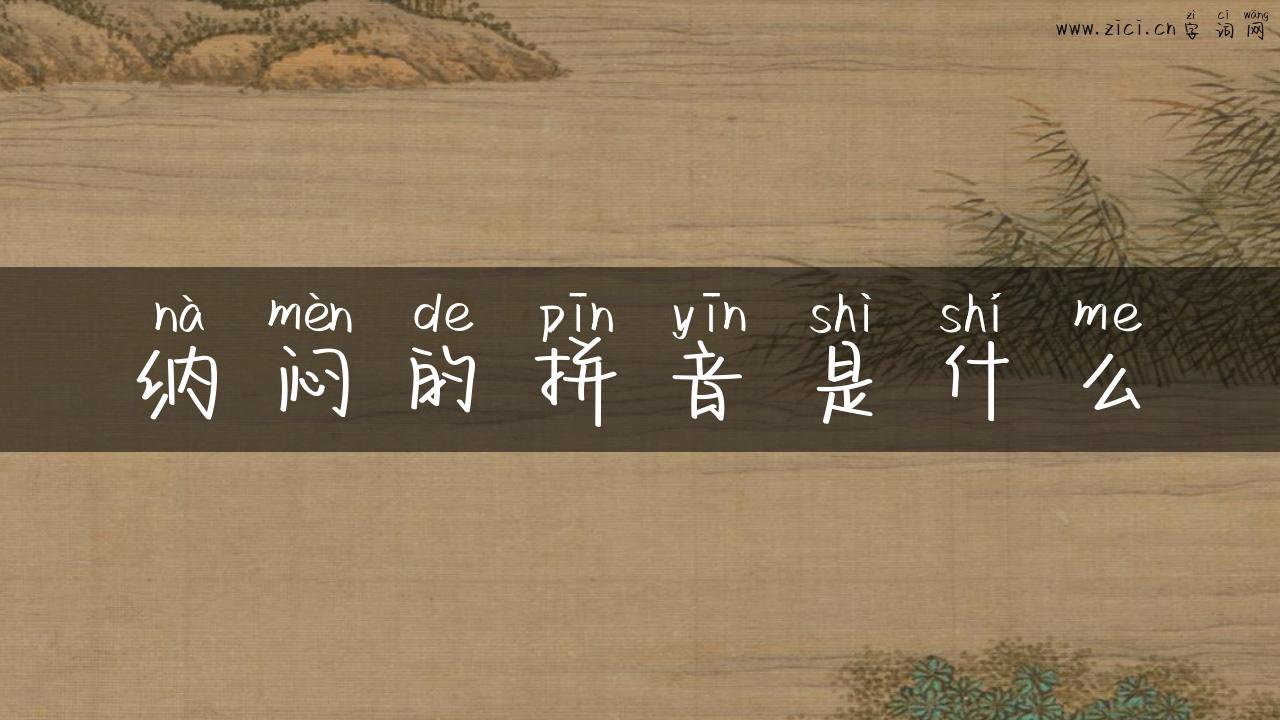 zì cí wǎng
www.zici.cn 字 词 网
nà mèn de pīn yīn shì shí me
纳 闷 的 拼 音 是 什 么